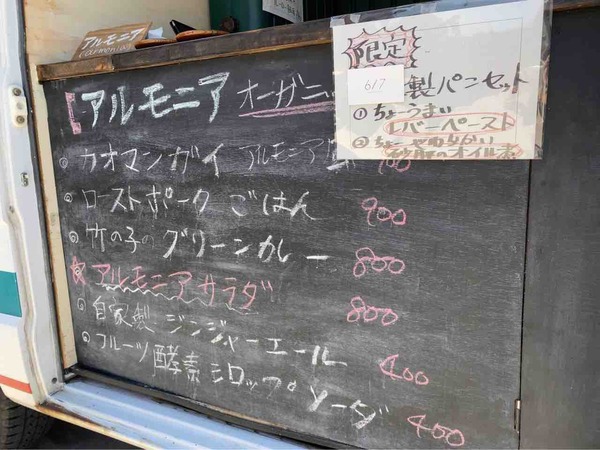 アルモニア
(armonia)
限定
617
製パンセット
① ちょーうまい
レバーペースト
②
のオイル煮
アルモニア オーガニッ
カオマンガイ アルモニア
ローストポーク ごはん 900
竹の子のグリーンカレー 800
アルモニアサラダ 800
自家製 ジンジャーエール 400
フルーツ酵素シロップ ソーダ 400